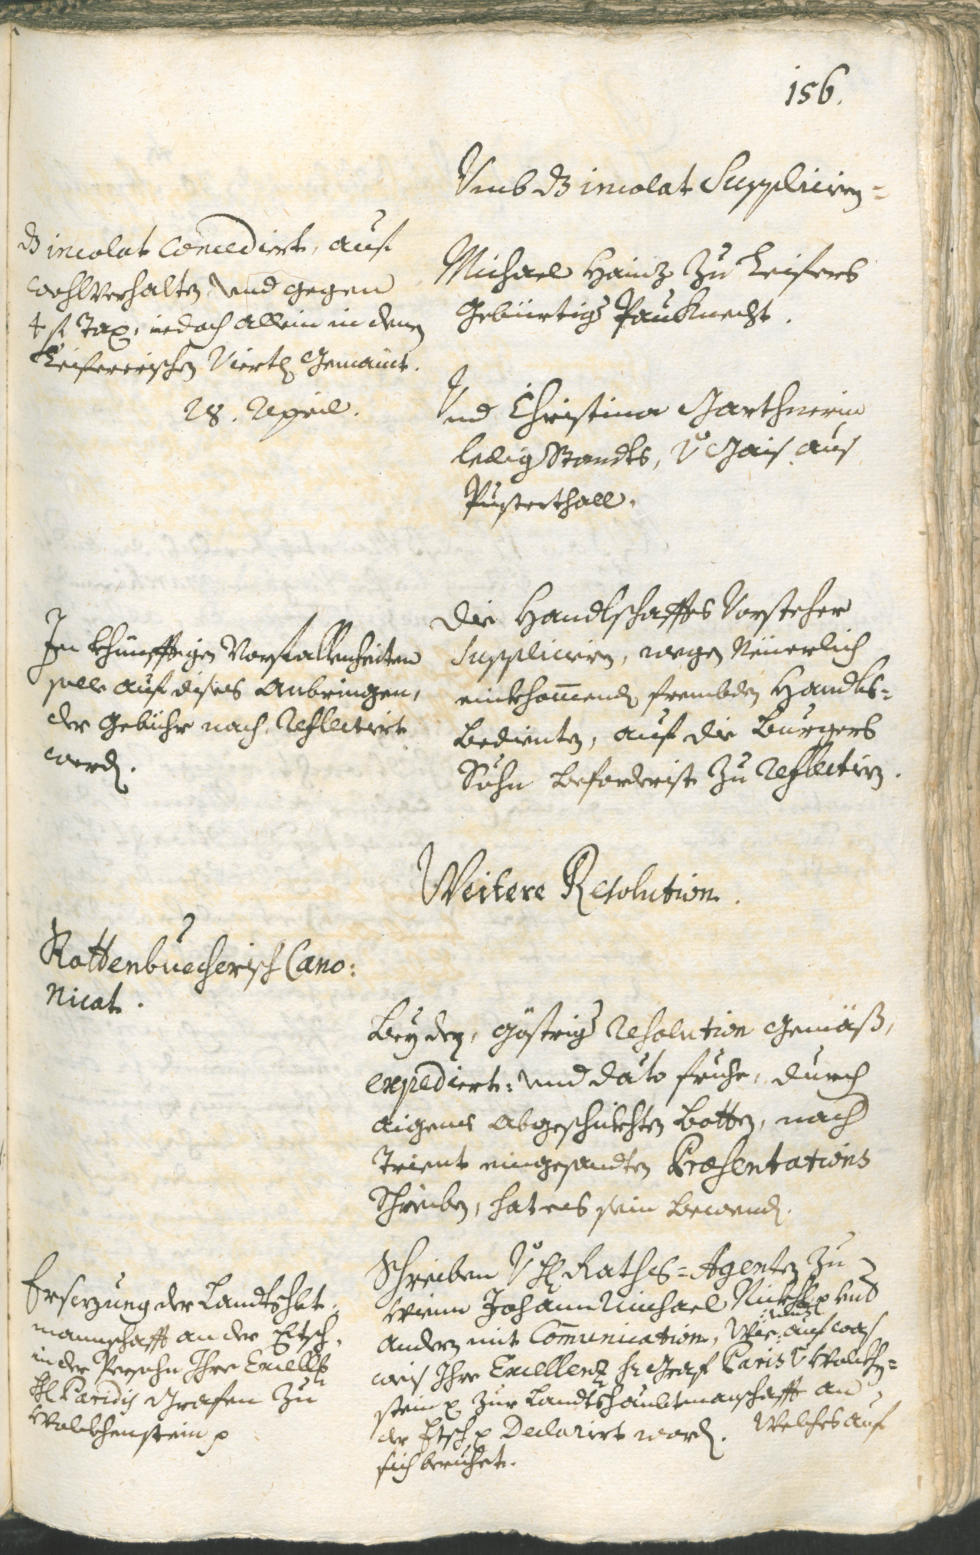 156.
Umb dz incolat Supplicirn=
dz incolat concedirt, auf
wohlverhalten, und gegen
4 f. Tax, iedoch allein in dem
Leifererischen Viertl Gemaint.
28. April.
Michael Hainz zu Leifers
Gebürtigr Paukhnecht.
Und Christina Garthnerin
ledig Standts, v. Gais aus
Pusterthall.
In khünfftigen Vorfallenheiten
solle auf dises Anbringen,
der gebühr nach reflectirt
werdn.
Die Handlschaffts Vorsteher
Supplicirn, wegen Neuerlich
einkhommendn frembden Handls=
Bedienten, auf die Burgers
Söhn beforderist zu reflectirn.
Weitere Resolution.
Rottenbuecherisch Cano:
nicat.
Bey den, göstrigr resolution gemäß,
expediert: und dato fruhe, durch
aigens abgeschikhten botten, nach
Trient eingesandten Præsentations
Schreiben, hat es sein bewendn.
Ersezung der Landtshbt:
mannschafft an der Etsch,
in der Persohn Ihro Excellz
H. Paridis Grafen zu
Wolkhenstein p
Schreiben v. H. Raths=Agenten zu
Wienn Johann Michael p und
andern mit Communication, wie: auf was
weis Ihro Excellenz H. Graf Paris v. Wolkhn=
stein p zur Landtshaubtmanschafft an
der Etsch p Declarirt wordn. Welches auf
sich beruhet.